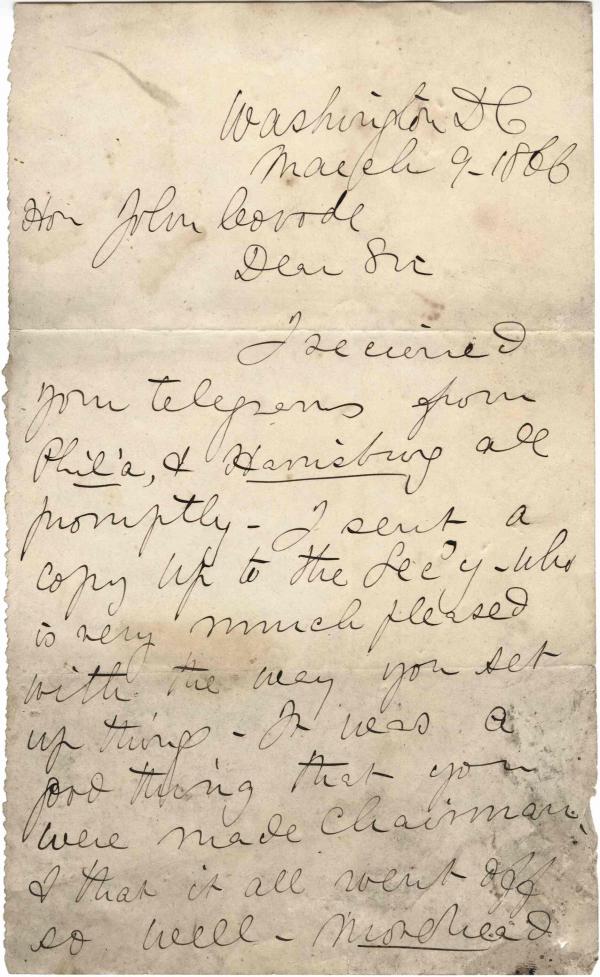 Washington DC
March 9-1866
Hon John Covode
Dear Sir
I recieved
your telegrams from
Phil'a, & Harrisburg all
promptly - I sent a
copy up to the Sec'y - who
is very much pleased
with the way you set
up things - It was a
good thing that you
were made chairman,
& that it all went off
so well - Morehead